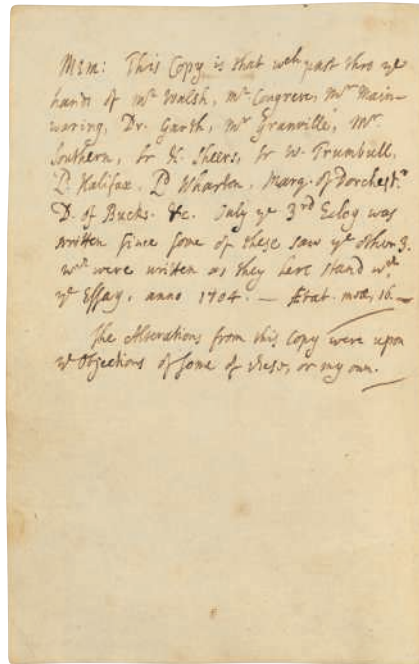 Mem: This Copy is that wch past thro ye
hands of Mr Walsh, Mr Congreve, Mr Main-
waring, Dr. Garth, Mr Granville, Mr.
Southern, Sr H. Sheers, Sr W. Trumbull,
Ld. Halifax, Ld. Wharton, Marq. of Dorchestr.
D. of Bucks. &c. Only ye 3rd Eclog was
written since some of these saw ye other 3.
wch were written as they here stand wth
ye Essay, anno 1704. — Ætat. meæ, 16. —
The Alterations from this Copy were upon
ye Objections of some of these, or my own.